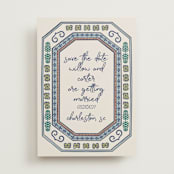 save the date
willow and
carter
are getting
married
charleston, sc